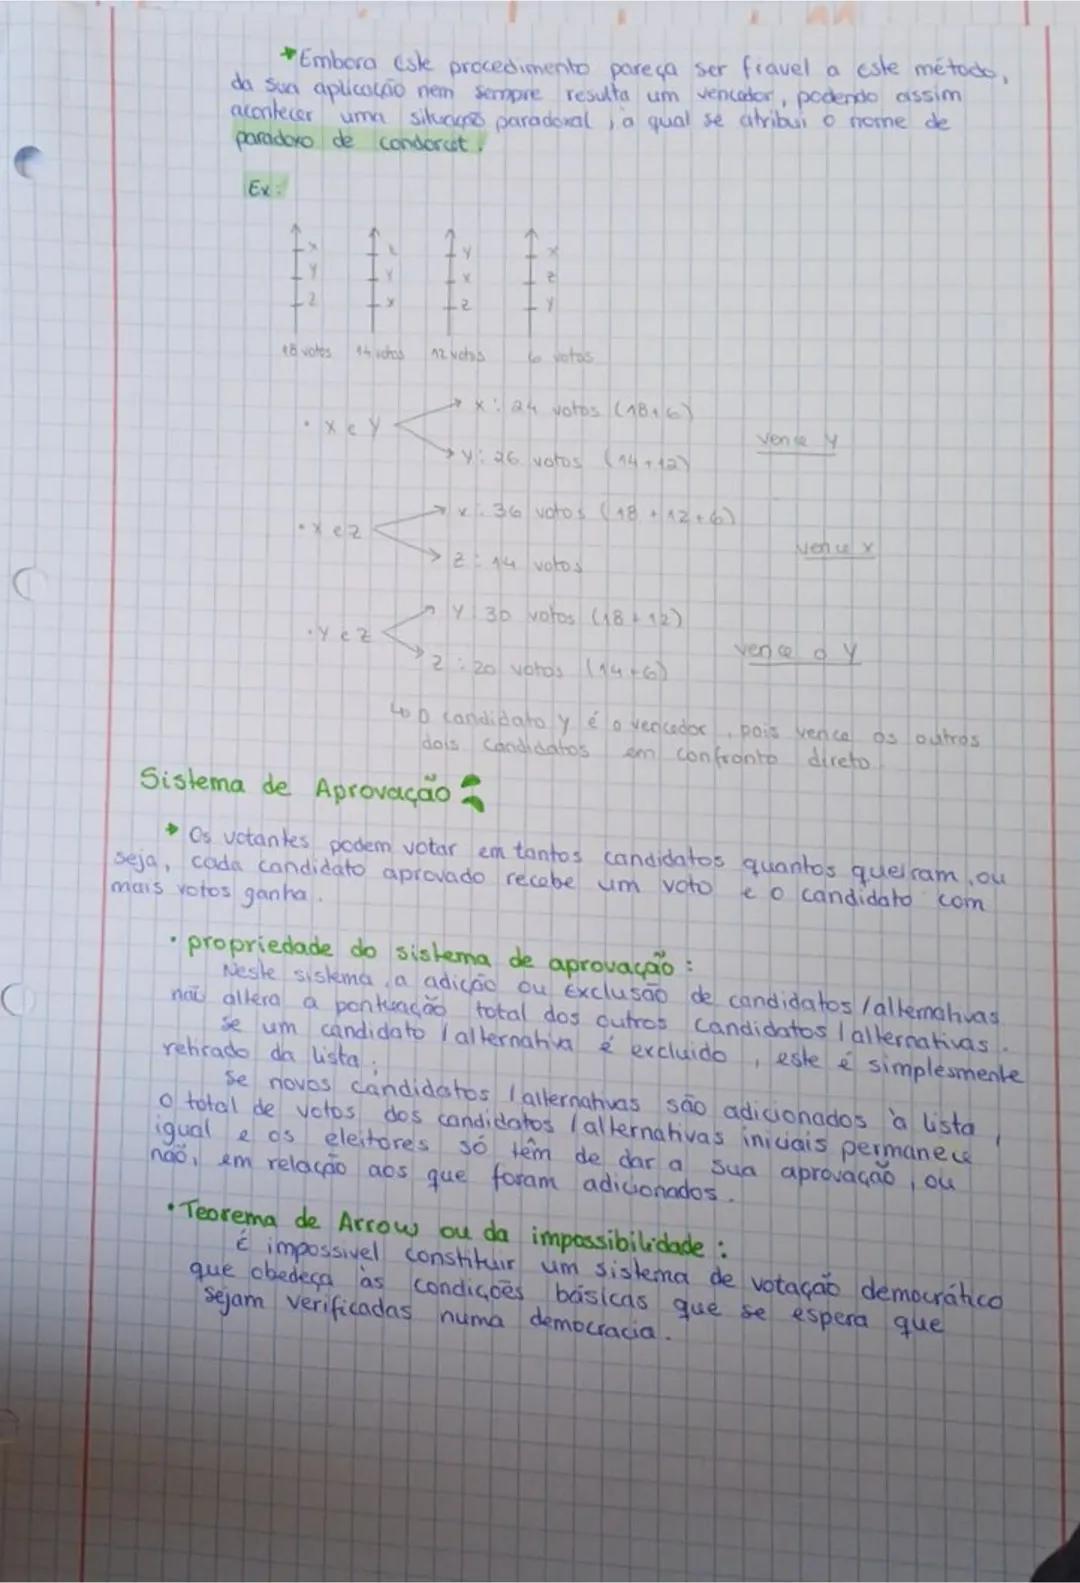 Embora este procedimento pareça ser fiavel a este método,
da sua aplicação nem sempre resulta um vencedor, podendo assim
acontecer uma situação paradoxal, a qual se atribui o nome de
paradoxo de condorcet.
Ex:
x z y x
y y x z
z x z y
18 votos 14 votos 12 votos 6 votos
x: 24 votos (18+6)
• x e y
vence y
y: 26 votos (14+12)
x: 36 votos (18+12+6)
• x e z
vence x
z: 14 votos
y: 30 votos (18+12)
• y e z
vence o y
z: 20 votos (14+6)
↳ O candidato y é o vencedor, pois vence os outros
dois candidatos em confronto direto
Sistema de Aprovação:
Os votantes podem votar em tantos candidatos quantos queiram, ou
seja, cada candidato aprovado recebe um voto e o candidato com
mais votos ganha.
• propriedade do sistema de aprovação:
Neste sistema, a adição ou exclusão de candidatos/alternativas
não altera a pontuação total dos outros candidatos/alternativas.
Se um candidato/alternativa é excluido, este é simplesmente
retirado da lista;
Se novos candidatos/alternativas são adicionados à lista,
o total de votos dos candidatos/alternativas iniciais permanece
igual e os eleitores só têm de dar a sua aprovação, ou
não, em relação aos que foram adicionados.
• Teorema de Arrow ou da impossibilidade:
É impossivel constituir um sistema de votação democrático
que obedeça às condições básicas que se espera que
sejam verificadas numa democracia.